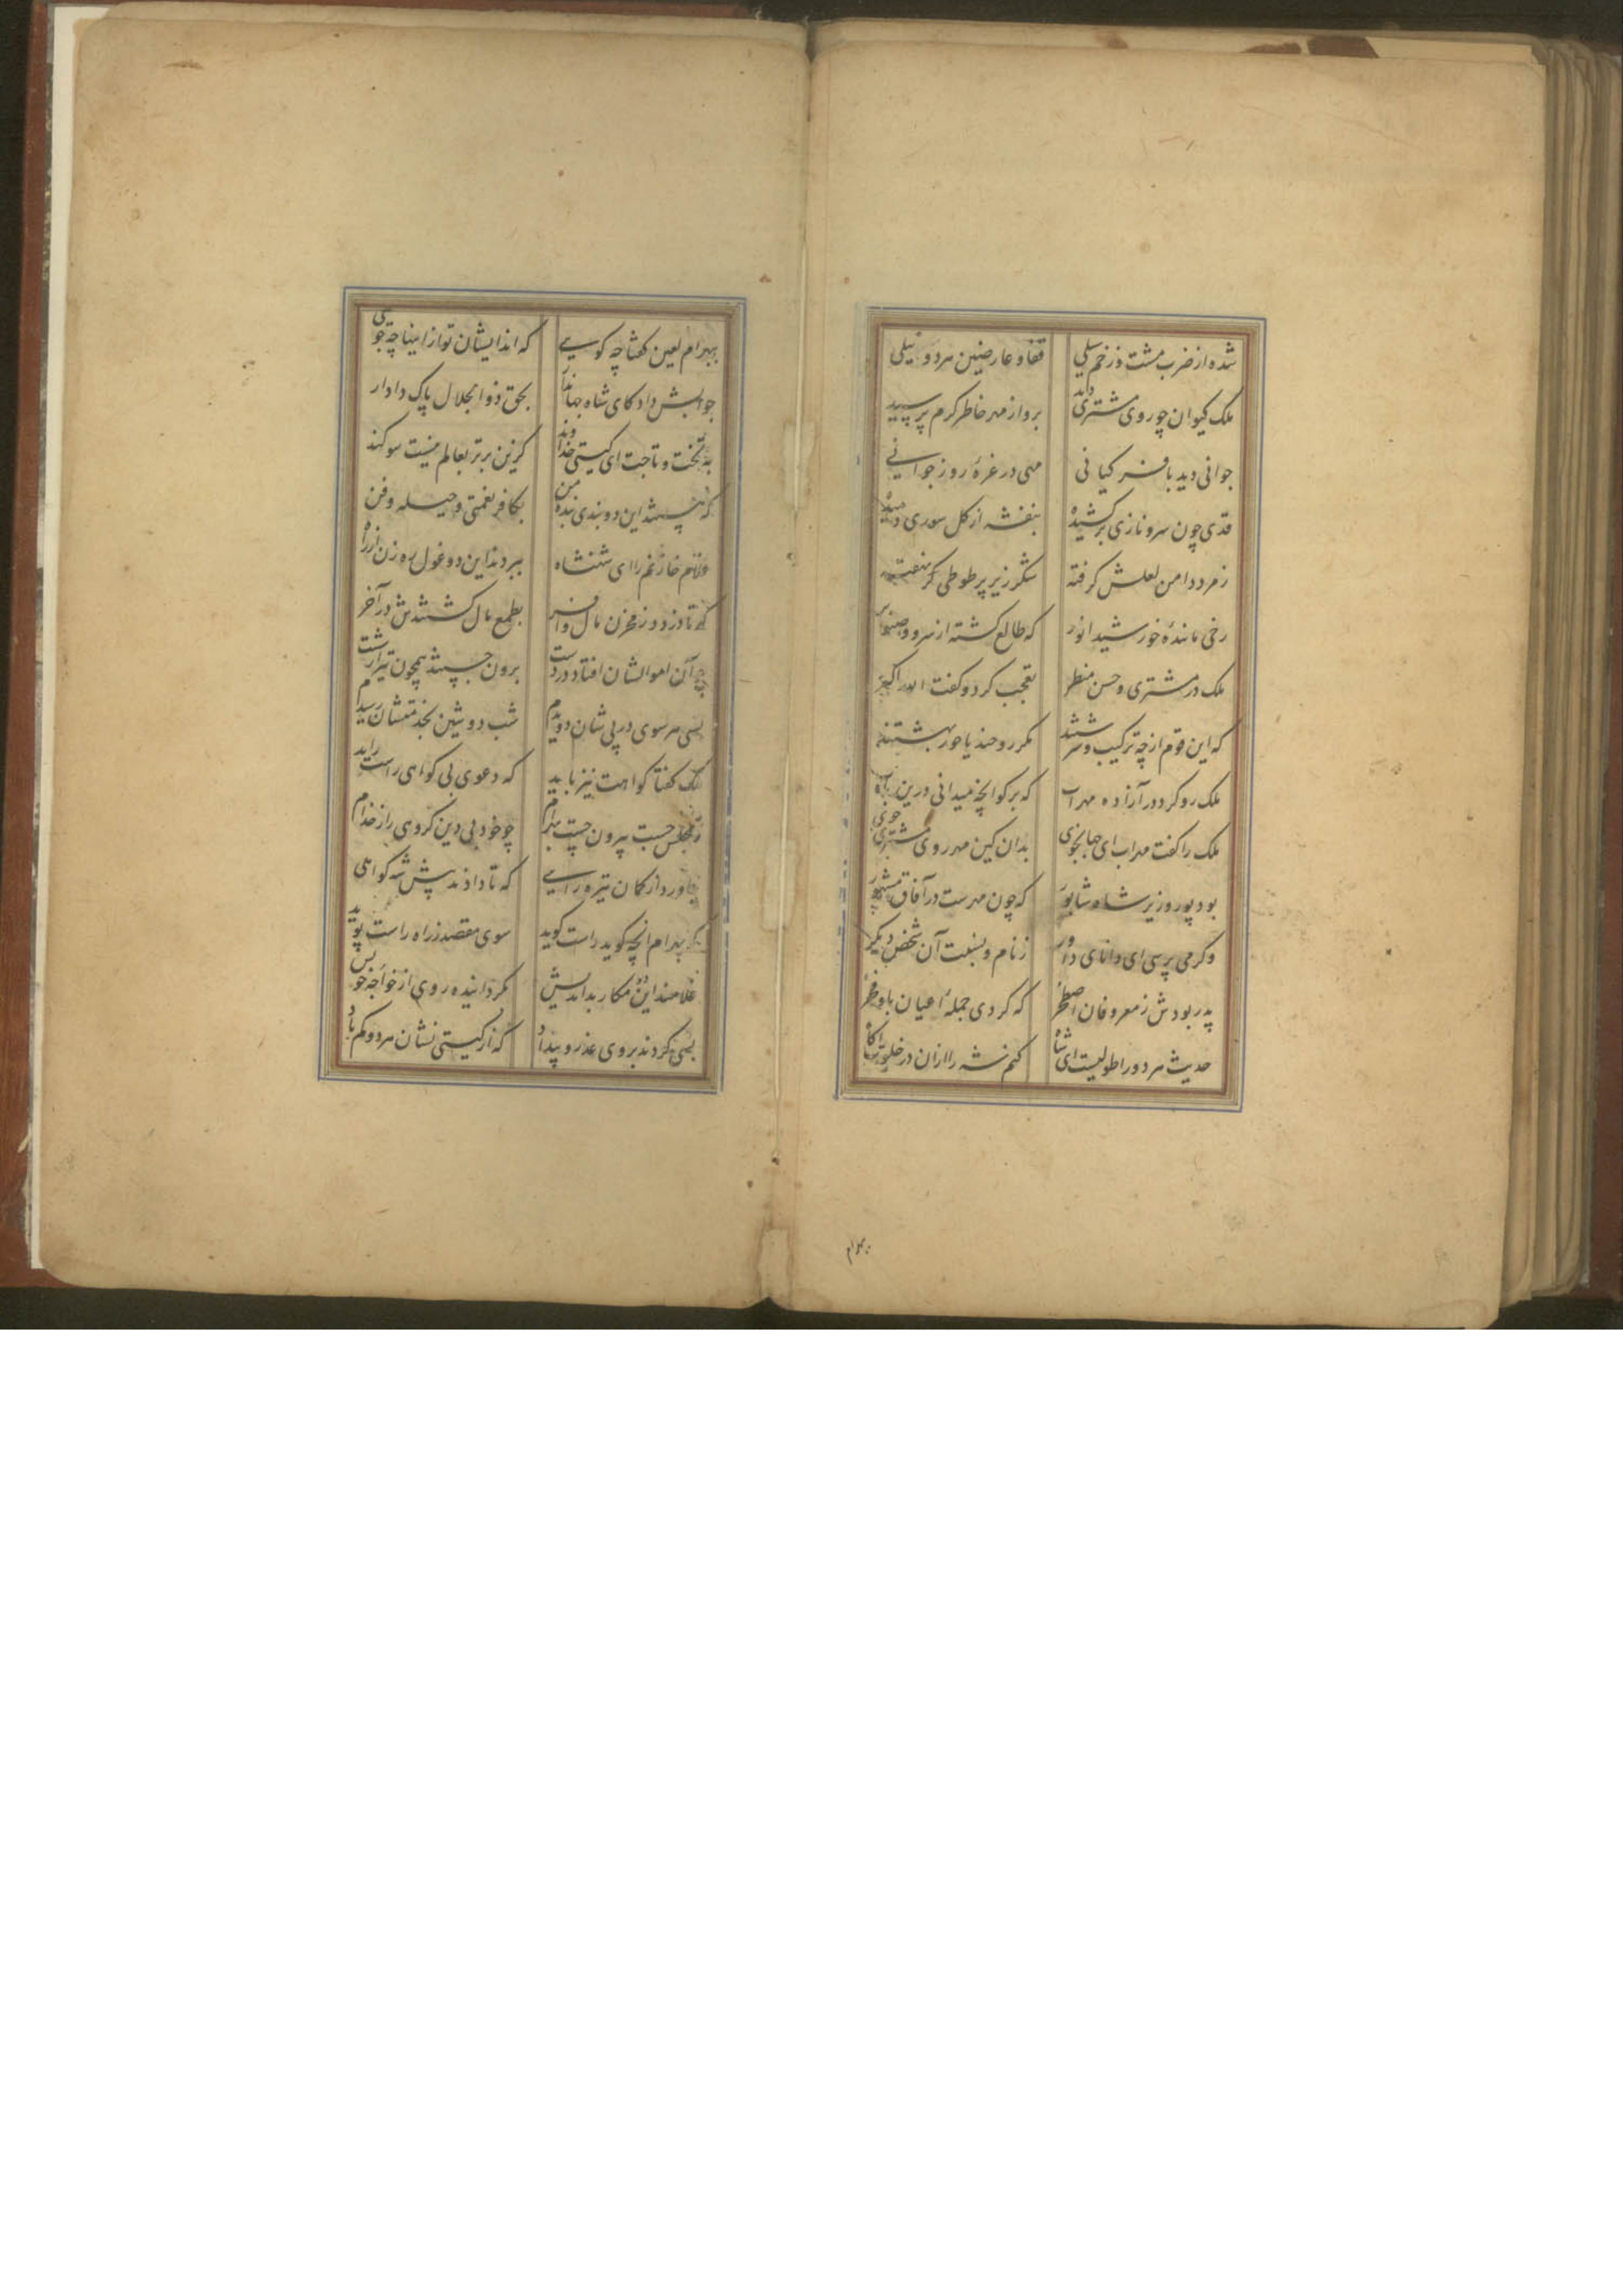 شده از ضرب مشت و زخم سیلی قفا و عارضین هر دو نیلی
ملک کیوان چو روی مشتری دید برو از مهر خاطر کرم پرسید
جوانی دید با فر کیانی مهی در غرهٔ روز جوانی
قدی چون سرو نازی برکشیده بنفشه از کل سوری دمیده
زمرد دامن لعلش کرفته شکر زیر پر طوطی نهفته
رخی مانندهٔ خورشید انور که طالع کشته از سرو و صنوبر
ملک در مشتری و حسن منظر تعجب کرد و کفت الله اکبر
که این قوم از چه ترکیب و سرشتند مکر روحند یا حور بهشتند
ملک رو کرد در آزاده مهراب که بر کو انچه میدانی درین باب
ملک را کفت مهراب ای جهانجوی بدان کین مهر روی مشتری خوی
بود پور وزیر شاه شابور که چون مهرست در آفاق مشهور
وکر می پرسی ای دانای داور ز نام و نسبت آن شخص دیکر
پدر بودش ز معروفان اصطخر که کردی جملهٔ اعیان باو فخر
حدیث هر دو را طولیست ای شاه کنم شه را ازان در خلوت آکاه
بهرام
بهرام لعین کفتا چه کویی که ایذا ایشان تو از اینها چه جویی
جوابش داد کای شاه جهاندار بحق ذوالجلال پاک دادار
به تخت و تاجت ای کیتی خداوند کزین برتر بعالم نیست سوکند
که هستند این دو بندی بندهٔ من بکافر نعمتی و حیله و فن
غلام خازنم را ای شنشاه ببردند این دو غول ره زن از راه
که تا دزدد ز مخزن مال وافر بطمع مال کشتندش در آخر
چو آن اموالشان افتاد در دست برون جستند همچون تیر از شست
بسی هر سوی در پی شان دویدم شب دوشین بخدمتشان رسیدم
ملک کفتا کواهت نیز باید که دعوی بی کواهی راست ناید
ز مجلس جست بیرون چست بهرام چو خود بی دین کروهی را ز خدام
بیاورد از کمان تیره رایی که تا دادند پیش شه کواهی
که بهرام انچه کوید راست کوید سوی مقصد ز راه راست پوید
غلامند این دو مکار بداندیش بکردانیده روی از خواجه خویش
بسی کردند بروی عذر و بیداد که از کیتی نشان هر دو کم باد